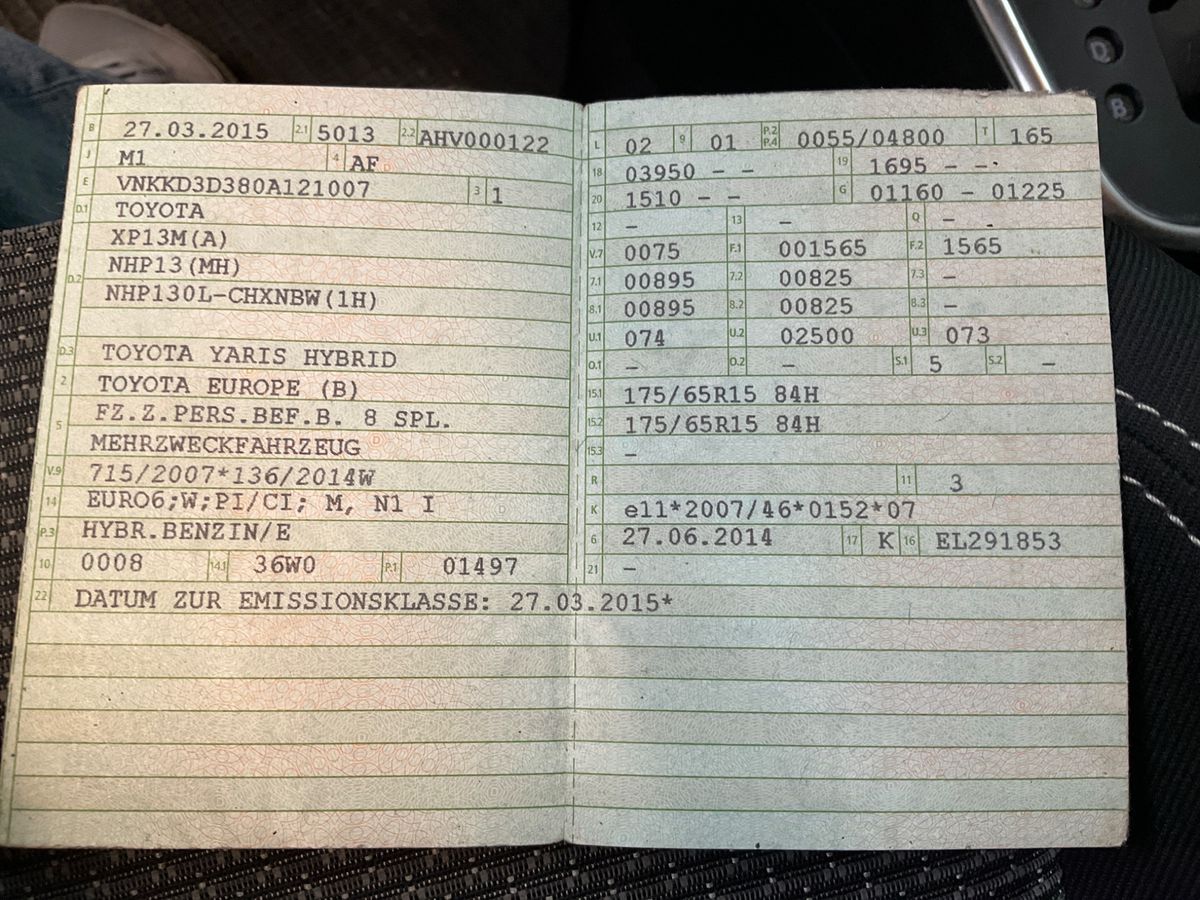 B 27.03.2015 2.1 5013 2.2 AHV000122
J M1 4 AF
E VNKKD3D380A121007 3 1
D.1 TOYOTA
XP13M(A)
D.2 NHP13(MH)
NHP130L-CHXNBW(1H)
D.3 TOYOTA YARIS HYBRID
2 TOYOTA EUROPE (B)
5 FZ.Z.PERS.BEF.B. 8 SPL.
MEHRZWECKFAHRZEUG
V.9 715/2007*136/2014W
14 EURO6;W;PI/CI; M, N1 I
P.3 HYBR.BENZIN/E
10 0008 14.1 36W0 P.1 01497
L 02 9 01 P.2 P.4 0055/04800 T 165
18 03950 - - 19 1695 - -
20 1510 - - G 01160 - 01225
12 - 13 - Q -
V.7 0075 F.1 001565 F.2 1565
7.1 00895 7.2 00825 7.3 -
8.1 00895 8.2 00825 8.3 -
U.1 074 U.2 02500 U.3 073
O.1 - O.2 - S.1 5 S.2 -
15.1 175/65R15 84H
15.2 175/65R15 84H
15.3 -
R 11 3
K e11*2007/46*0152*07
6 27.06.2014 17 K 16 EL291853
21 -
22 DATUM ZUR EMISSIONSKLASSE: 27.03.2015*
D
B